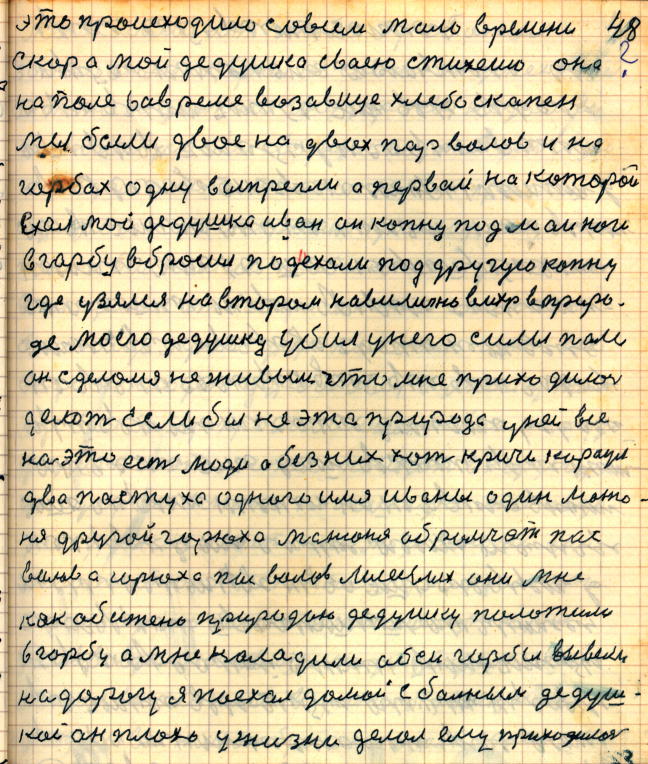 это происходило совсем мало времени 48
скора мой дедушка сваею стихею она ?
на поле вавреме возавице хлебо скапен
мы были двое на двох пар волов и на
гарбах одну выпрегли а первай на которой
ехал мой дедушка иван он копну под маи ноги
в гарбу вбросил подехали под другую копну
где узялся на втором навилно вихр в приро-
де моего дедушку убил у него силы пали
он сделался не живым что мне приходилос
делат если бы не эта природа у ней все
на это ест люди а без них хот кричи караул
два пастуха одного имя иваны один мато-
ня другой горюха матоня обромчат пас
валов а горюха пас валов они мне
как обижено природою дедушку положили
в гарбу а мне наладили обеи гарбы вывели
на дорогу я поехал домой с балным дедуш-
кой он плохо у жизни делал ему приходилос